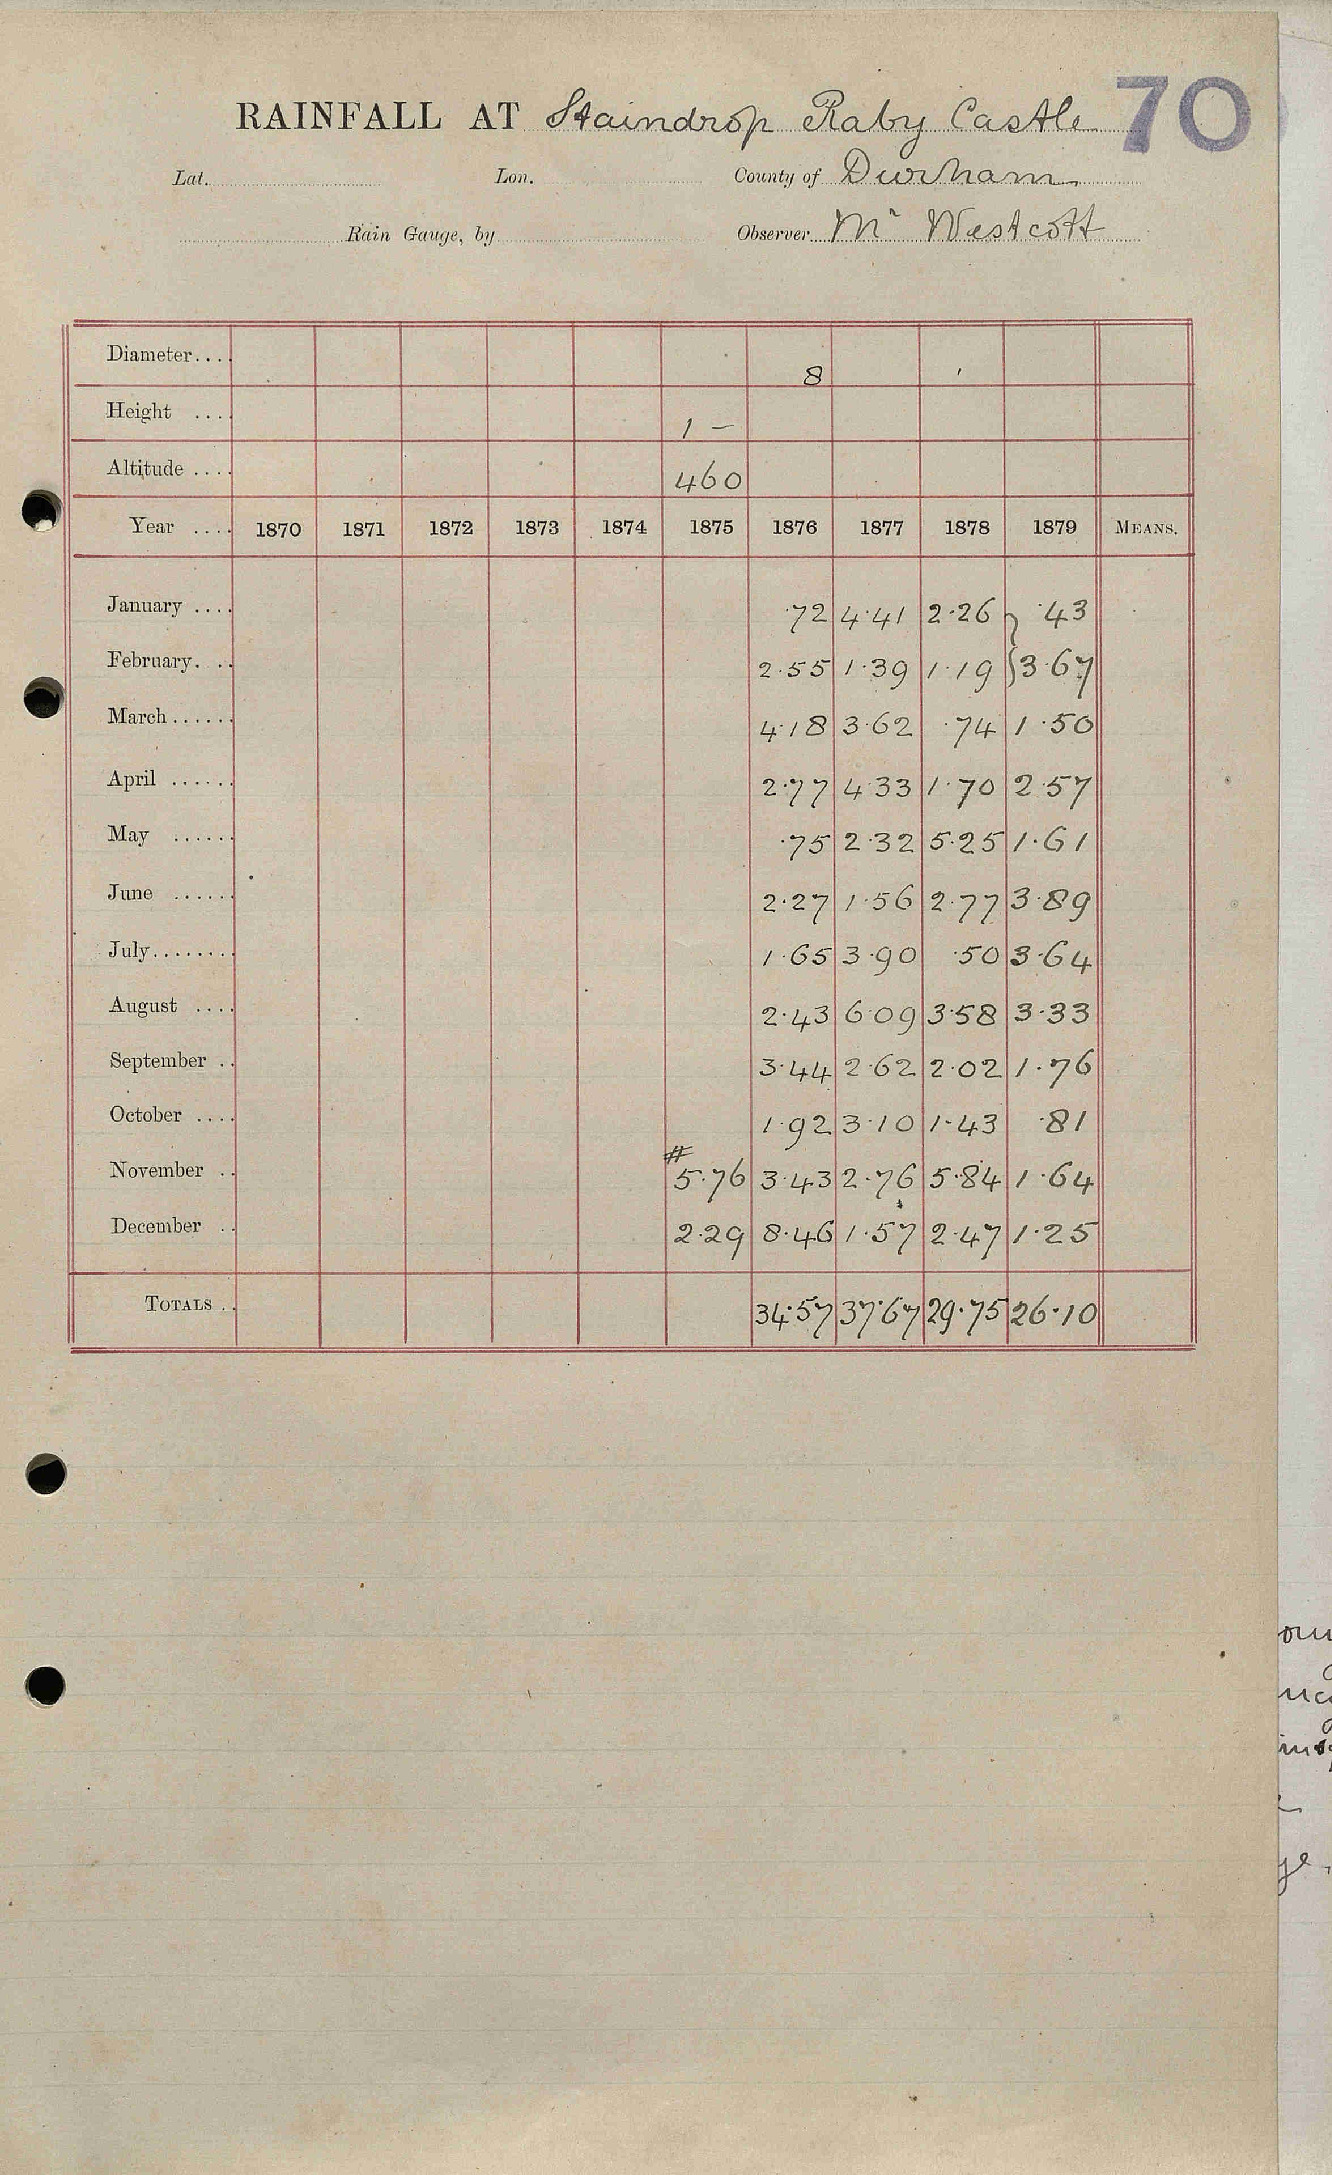 RAINFALL AT Staindrop Raby Castle 70
Lat. Lon. County of Durham
Rain Gauge, by Observer Mr Westcott
Diameter.... 8
Height .... 1 –
Altitude .... 460
Year .... 1870 1871 1872 1873 1874 1875 1876 1877 1878 1879 MEANS.
January .... ·72 4·41 2·26 ·43
February. .. 2·55 1·39 1·19 3·67
March...... 4·18 3·62 ·74 1·50
April ...... 2·77 4·33 1·70 2·57
May ...... ·75 2·32 5·25 1·61
June ...... 2·27 1·56 2·77 3·89
July........ 1·65 3·90 ·50 3·64
August .... 2·43 6·09 3·58 3·33
September .. 3·44 2·62 2·02 1·76
October .... 1·92 3·10 1·43 ·81
#
November .. 5·76 3·43 2·76 5·84 1·64
December .. 2·29 8·46 1·57 2·47 1·25
TOTALS .. 34·57 37·67 29·75 26·10